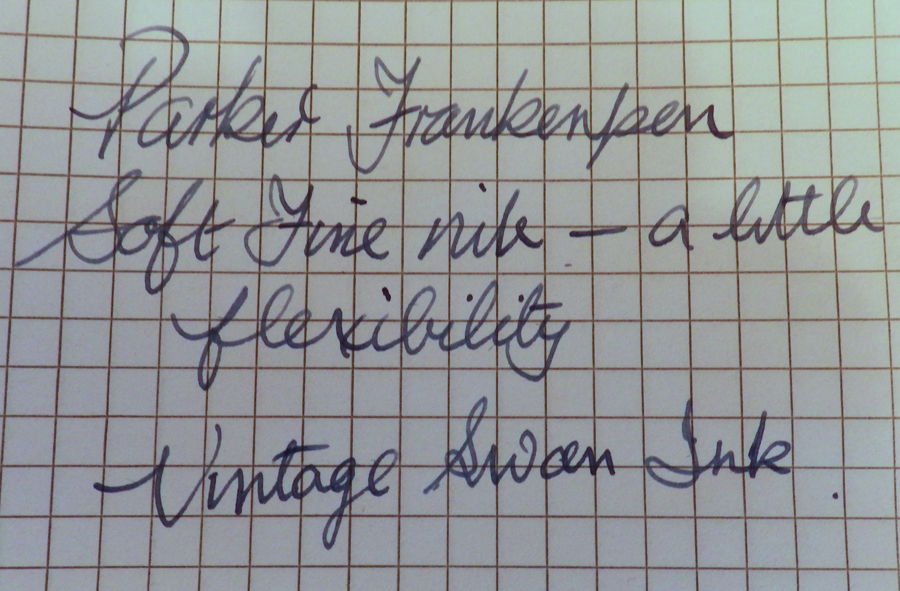 Parker Frankenpen
Soft Fine nib – a little
flexibility
Vintage Swan Ink.